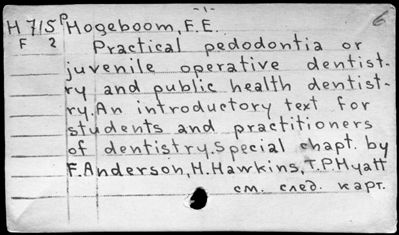 -1-
6
H 715 P Hogeboom, F.E.
F 2 Practical pedodontia or
juvenile operative dentist-
ry and public health dentist-
ry. An introductory text for
students and practitioners
of dentistry. Special chapt. by
F. Anderson, H. Hawkins, T.P. Hyatt
см. след. карт.